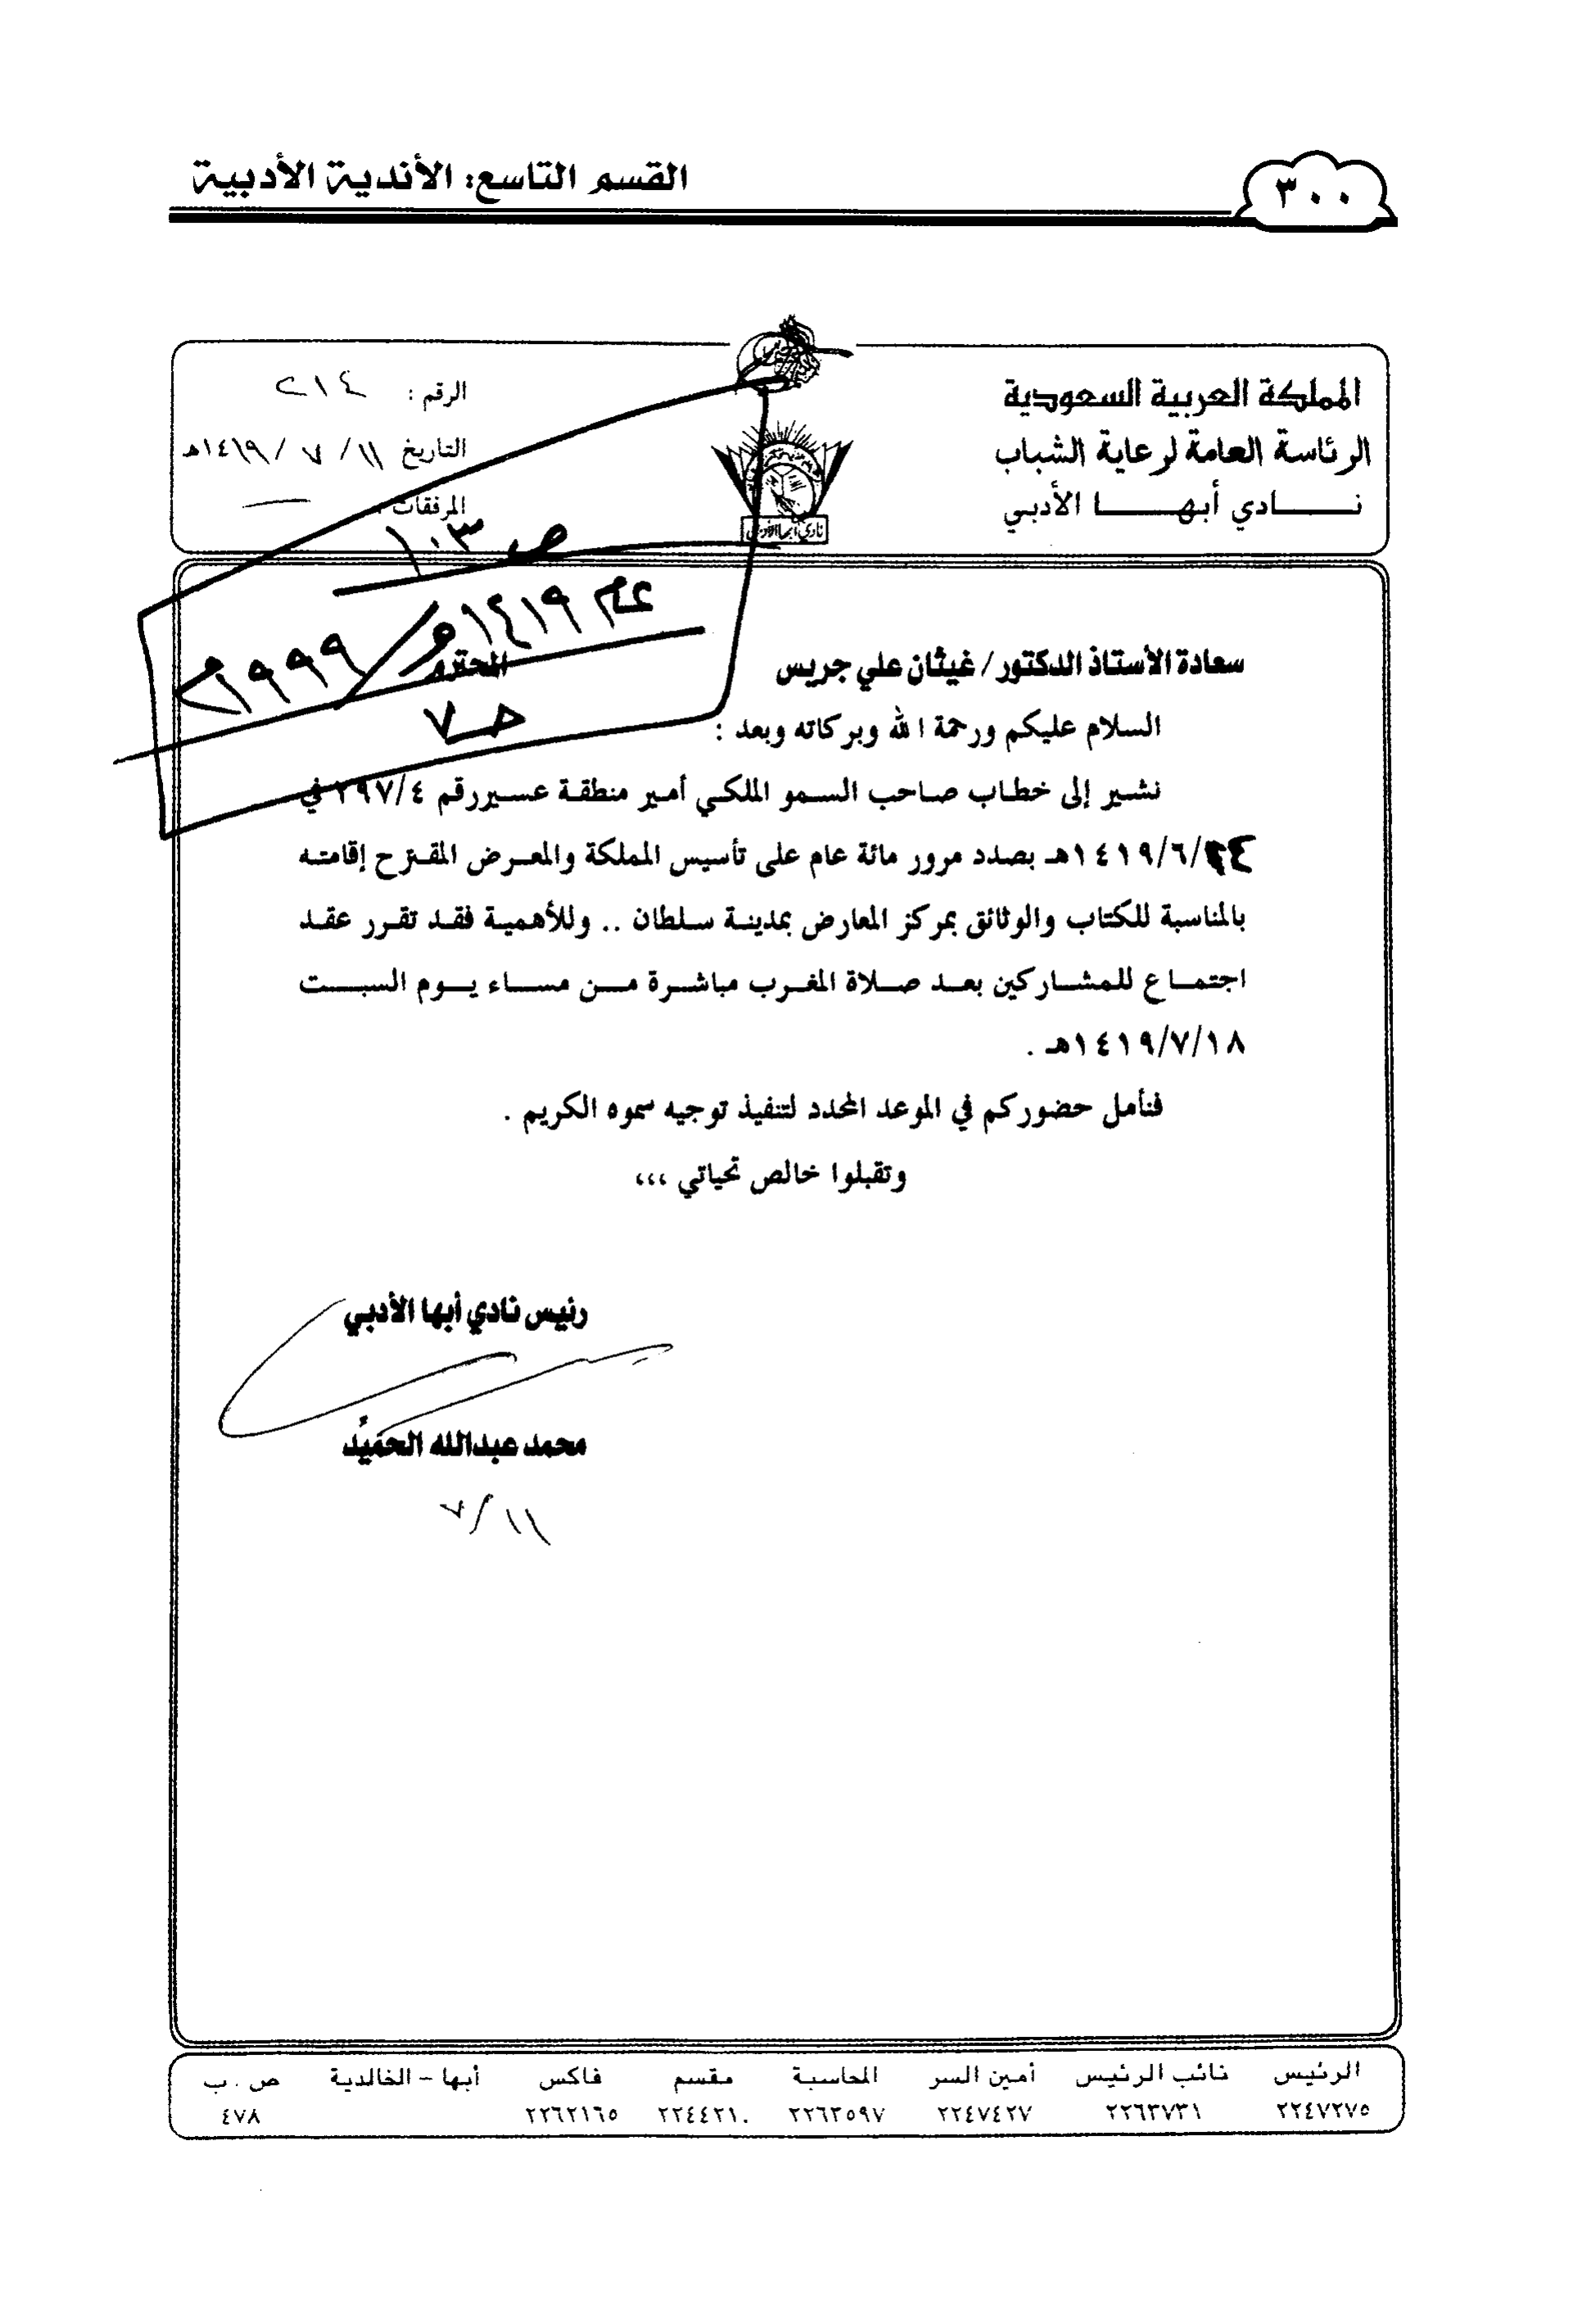 القسم التاسع: الأندية الأدبية
٣٠٠
المملكة العربية السعودية
الرئاسة العامة لرعاية الشباب
نادي أبها الأدبي
الرقم : ٢١٤
التاريخ ١١ / ٧ / ١٤١٩هـ
المرفقات :
نادي أبها الأدبي
ص ١٠٣
عام ١٤١٩هـ / ١٩٩٩م
ص٧
سعادة الأستاذ الدكتور/ غيثان علي جريس المحترم
السلام عليكم ورحمة الله وبركاته وبعد :
نشير إلى خطاب صاحب السمو الملكي أمير منطقة عسير رقم ٢٩٧/٤ في
٢٤/٦/١٤١٩هـ بصدد مرور مائة عام على تأسيس المملكة والمعرض المقترح إقامته
بالمناسبة للكتاب والوثائق بمركز المعارض بمدينة سلطان .. وللأهمية فقد تقرر عقد
اجتماع للمشاركين بعد صلاة المغرب مباشرة من مساء يوم السبت
١٤١٩/٧/١٨هـ .
فنأمل حضوركم في الموعد المحدد لتنفيذ توجيه سموه الكريم .
وتقبلوا خالص تحياتي ،،،
رئيس نادي أبها الأدبي
محمد عبدالله الحميّد
٧/١١
الرئيس نائب الرئيس أمين السر المحاسبة مقسم فاكس أبها - الخالدية ص . ب
٢٢٤٧٢٧٥ ٢٢٦٣٧٣١ ٢٢٤٧٤٢٧ ٢٢٦٣٥٩٧ ٢٢٤٤٢١٠ ٢٢٦٢١٦٥ ٤٧٨